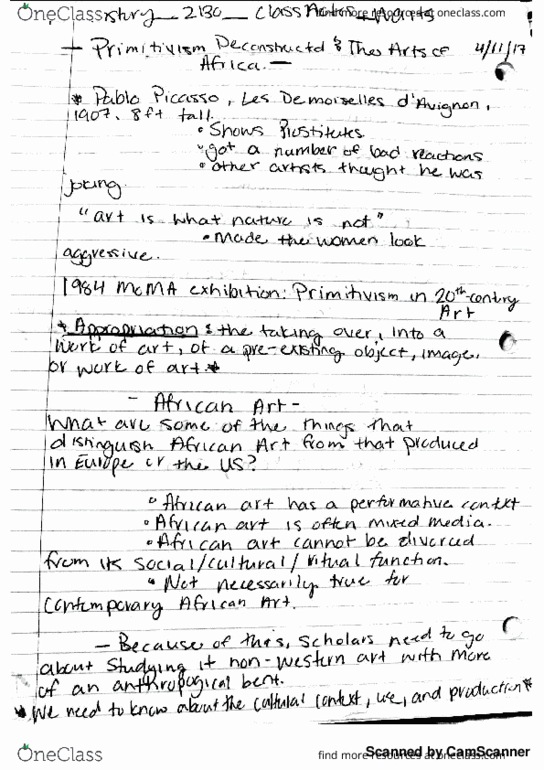 OneClass
find more resources at oneclass.com
2130 Class Notes
- Primitivism Deconstructd & The Arts of 4/11/17
Africa. -
* Pablo Picasso, Les Demoiselles d'Avignon,
1907. 8ft tall.
• Shows Prostitutes
• got a number of bad reactions
• other artists thought he was
joking.
"art is what nature is not"
• Made the women look
aggressive.
1984 MoMA exhibition: Primitivism in 20th-century
Art
* Appropriation: the taking over, into a
work of art, of a pre-existing object, image,
or work of art *
- African Art -
What are some of the things that
distinguish African Art from that produced
in Europe or the US?
• African art has a performative context
• African art is often mixed media.
• African art cannot be divorced
from its social/cultural/ritual function.
• Not necessarily true for
Contemporary African Art.
- Because of this, Scholars need to go
about studying it non-western art with more
of an anthropological bent.
* We need to know about the cultural context, use, and production *
OneClass
find more resources at oneclass.com
Scanned by CamScanner